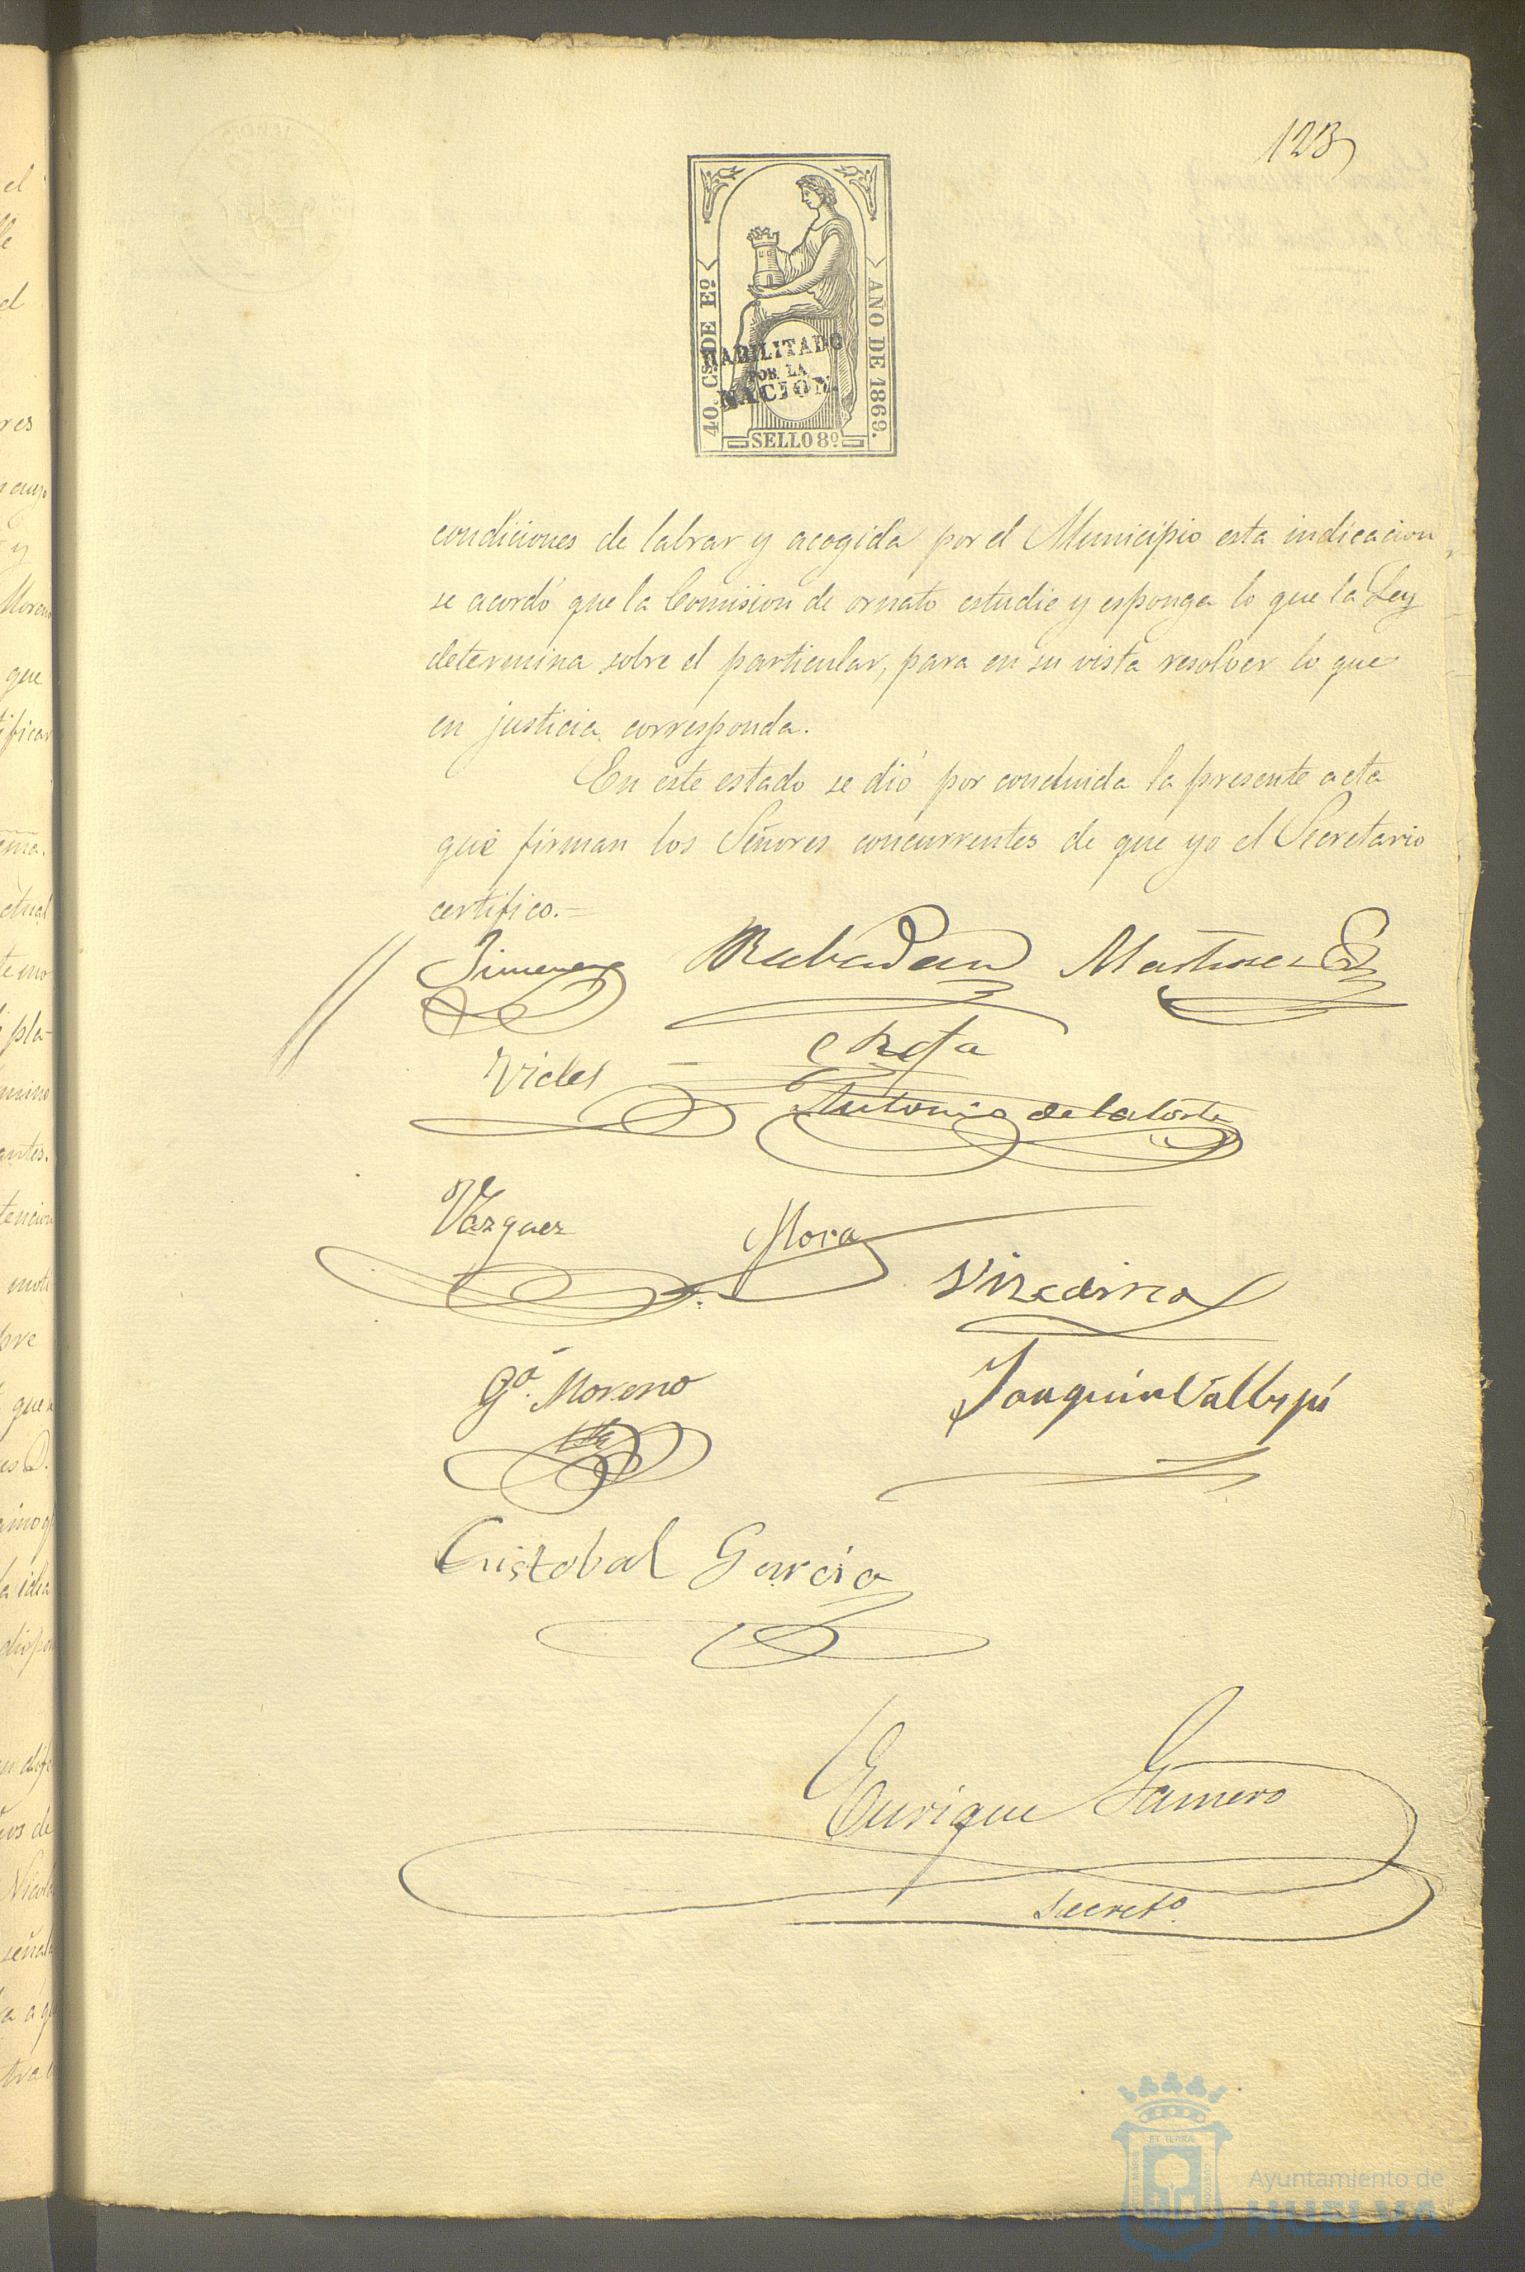 123
40. Cs. DE Eº
AÑO DE 1869.
HABILITADO
POR LA
NACION.
SELLO 8º
condiciones de labrar y acogida por el Municipio esta indicacion
se acordó que la Comision de ornato estudie y esponga lo que la Ley
determina sobre el particular, para en su vista resolver lo que
en justicia corresponda.
En este estado se dió por concluida la presente acta
que firman los Señores concurrentes de que yo el Secretario
certifico.=
Jimenez Rabadan Martinez
Vides
Antonio de la Corte
Vazquez Mora
Gª. Moreno Joaquin Vallejo
Cristobal Garcia
Enrique Gamero
Secretº
Ayuntamiento de
HUELVA
el
el
res
y
Moreno
que
tificar
ctual
pla-
antes.
tencion
que
la idea